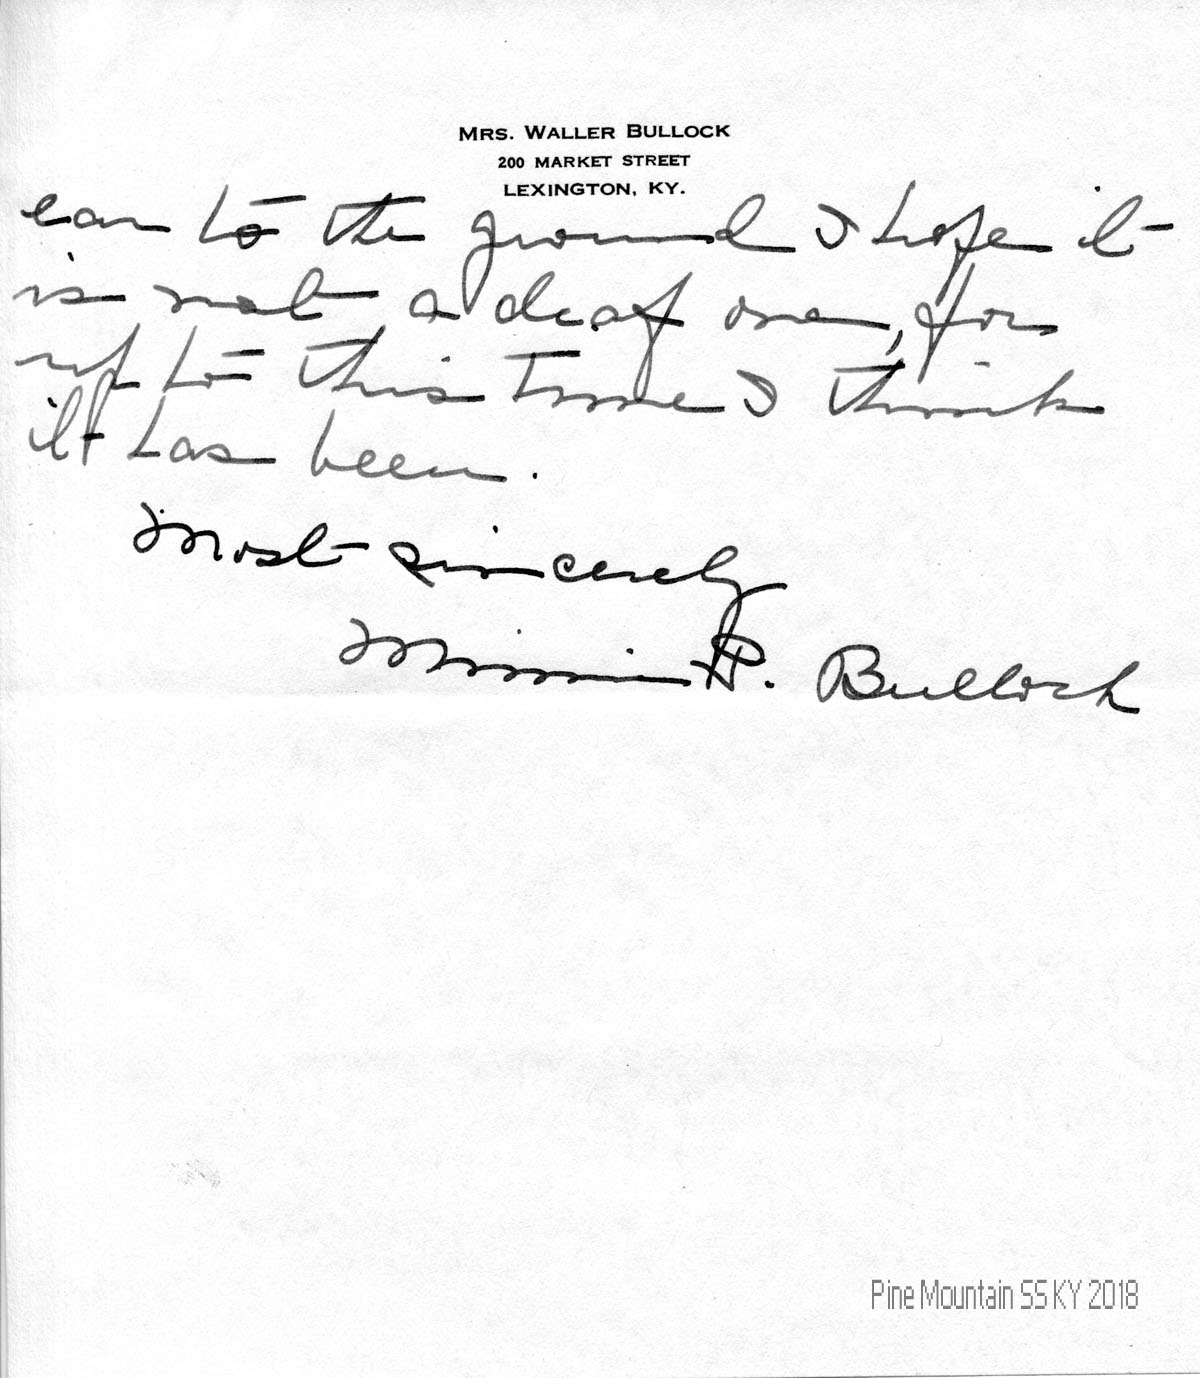 MRS. WALLER BULLOCK
200 MARKET STREET
LEXINGTON, KY.
ear to the ground I hope it
is not a deaf one, for
up to this time I think
it has been.
Most sincerely
Minnie P. Bullock
Pine Mountain SS KY 2018